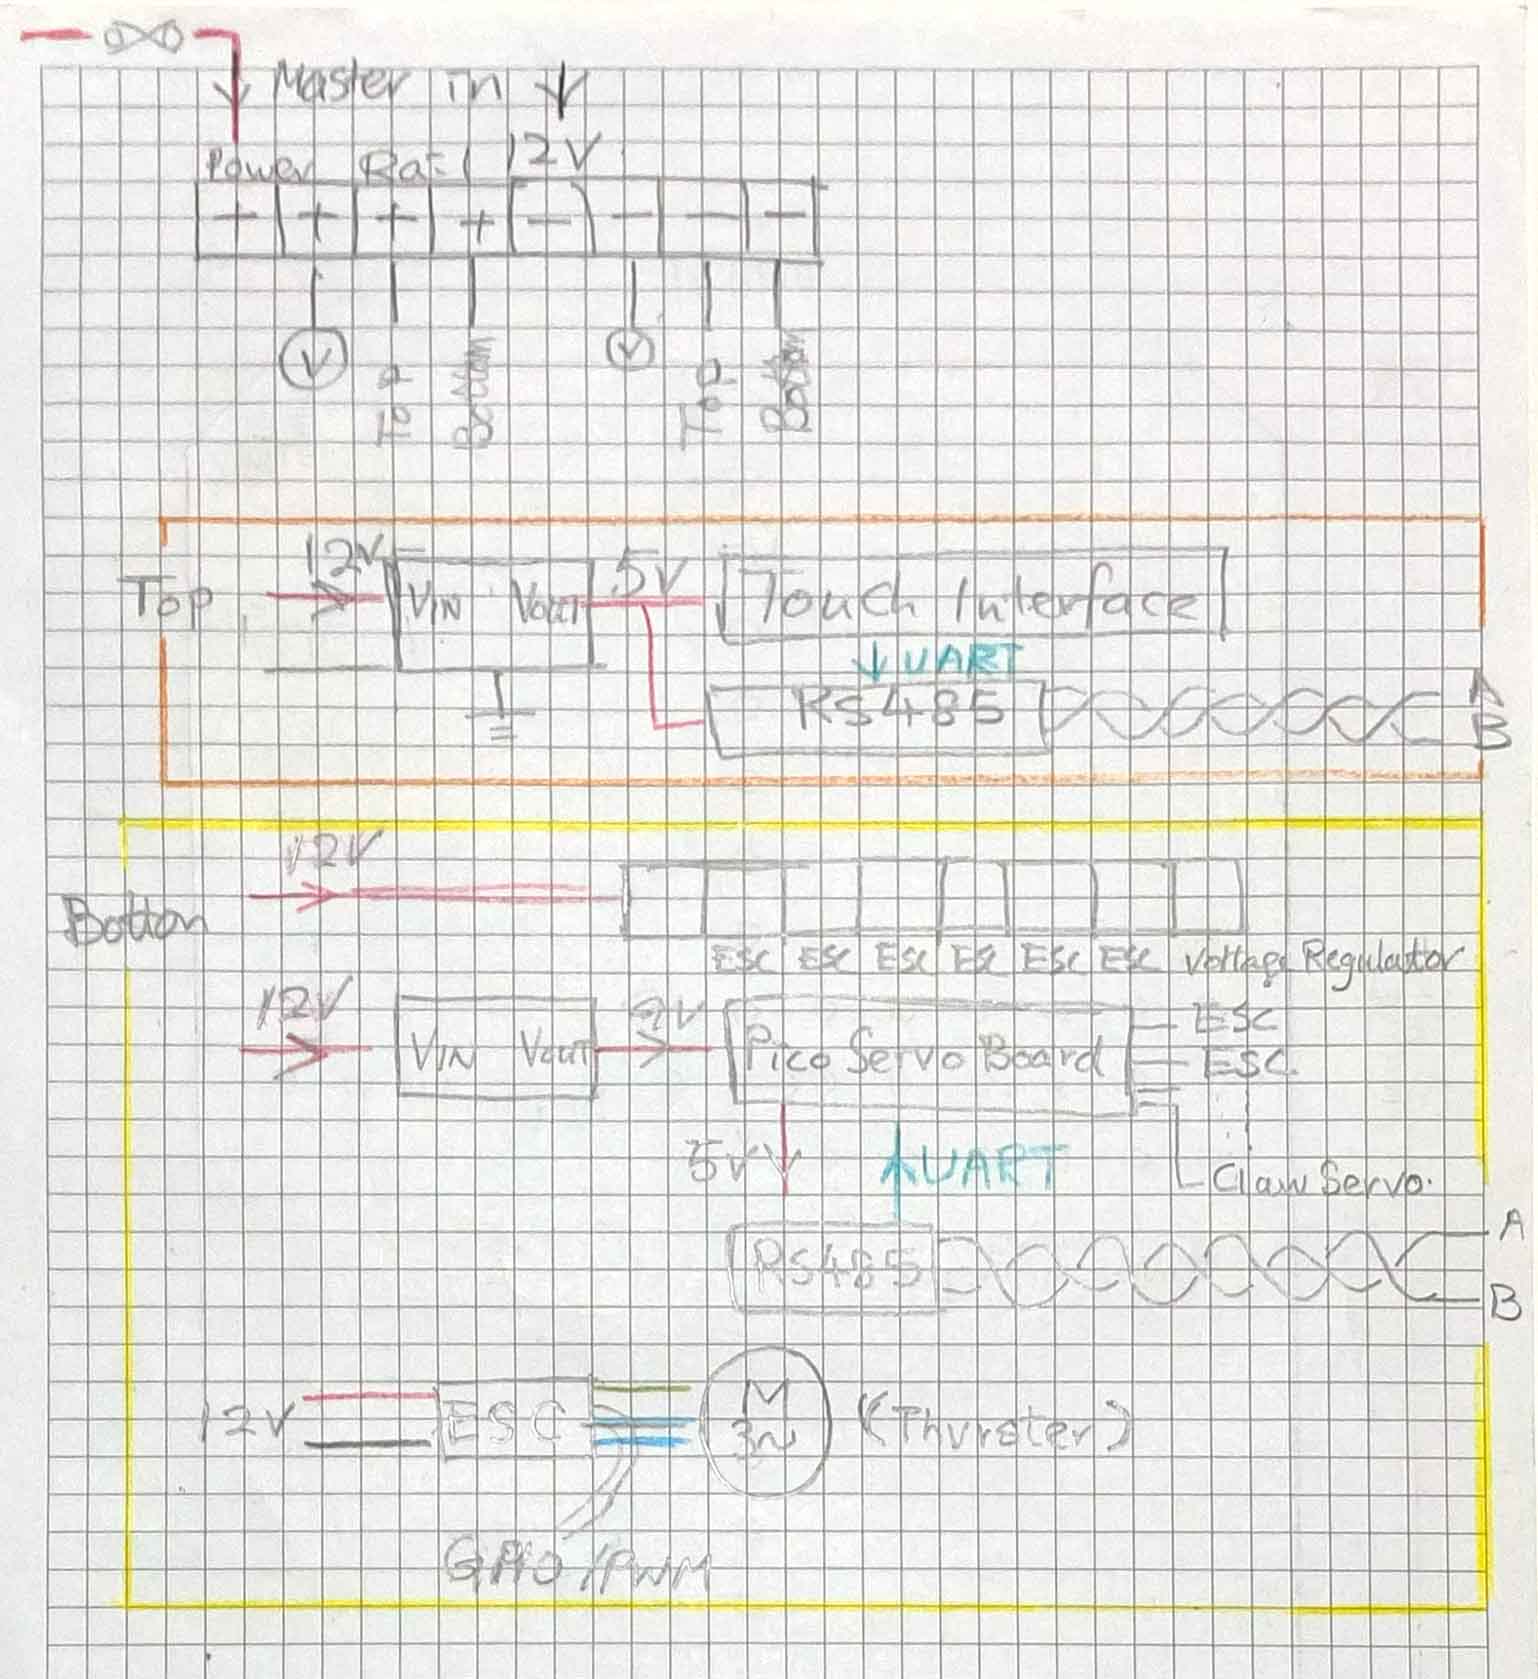 Master in
Power Rail 12V
+ + + + − − − −
V V
Top Bottom Top Bottom
12V 5V
Top VIN VOUT Touch Interface
UART
RS485 A
B
12V
Bottom
ESC ESC ESC ESC ESC ESC Voltage Regulator
12V
VIN VOUT Pico Servo Board ESC
ESC
5V UART
Claw Servo.
RS485 A
B
12V ESC M
3~ (Thurster)
GPIO/PWM